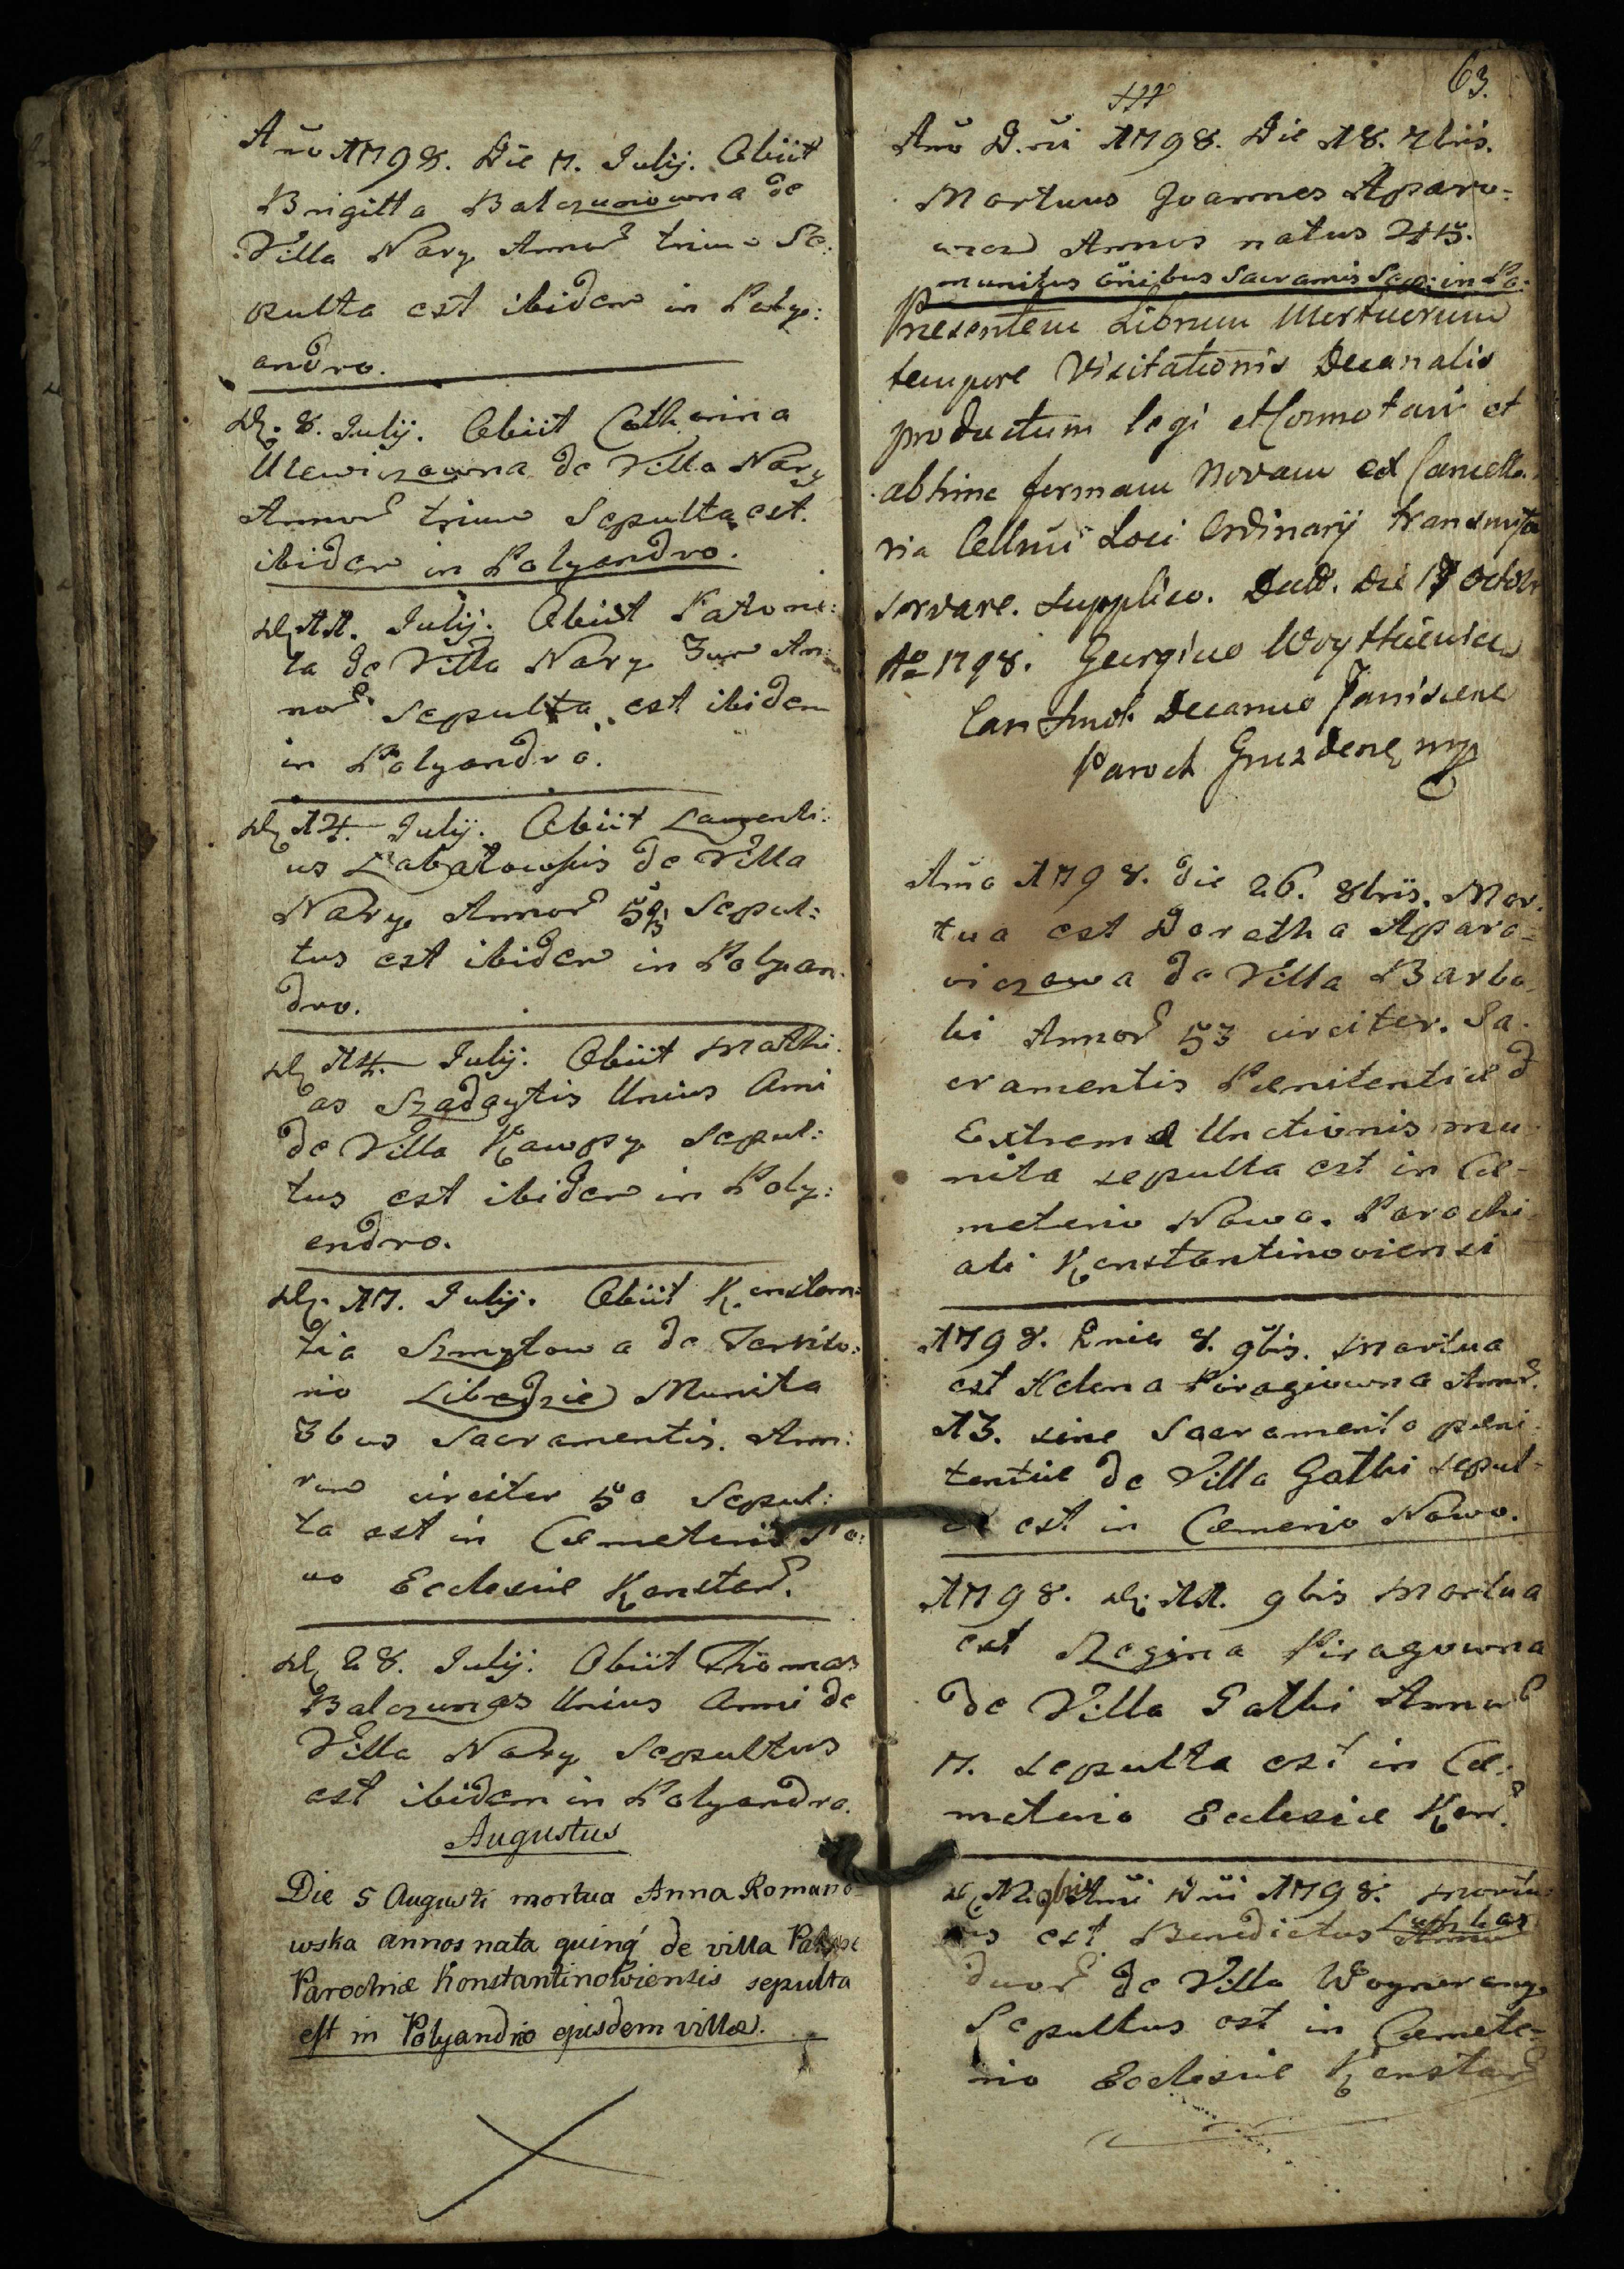 Año 1798. Die 7. Julij. Obiit
Brigitta Balczunowna de
Villa Nary Annor trium Se:
pulta est ibidem in Poly:
andro.
D. 8. Julij. Obiit Catharina
Ulewiczowna de Villa Nary
Annor trium Sepulta est.
ibidem in Polyandro.
D. 11. Julij. Obiit Patroni:
la de Villa Nary 3um An:
nor Sepulta est ibidem
in Polyandro.
D. 14. Julij. Obiit Laurenti:
us de Villa
Nary Annor Sepul:
tus est ibidem in Polyan:
dro.
D. 14. Julij. Obiit Mathi:
as Szadaytis Unius Anni
de Villa Kawpy Sepul:
tus est ibidem in Poly:
endro.
D. 17. Julij. Obiit Konstan:
tia Szmytowa de Territo:
rio Munita
3bus Sacramentis. Ann:
rum circiter 50 Sepul:
ta est in Cæmeterio No:
vo Ecclesiæ Konstan.
D 28. Julij. Obiit Thomas
Balczunas Unius Anni de
Villa Nary Sepultus
est ibidem in Polyandro.
Augustus
Die 5 Augusti mortua Anna Romano=
wska annos nata quinq de villa
Parochiæ Konstantinowiensis sepulta
est in Polyandrio ejusdem villæ.
63.
Año D.ni 1798. Die 18. 7bris.
Mortuus Joannes Aparo=
Annos natus 45.
munitus oñibus Sacramis Sep: in Po:
Presentem Librum Mortuorum
tempore Visitationis Decanalis
productum legi et Connotavi et
abhinc formam Novam ex Cancella=
ria Cellmi Loci Ordinarij transmissa
servare. Supplico. Datt. Die 17 Octobr
Ao 1798. Georgius Woytkiewicz
Can Smol. Decanus Janiscens
Paroch Gruzdens mp
Año 1798. die 26. 8bris. Mor:
tua est Dorotha Aparo=
viczowa de Villa Barbo
ki Annor 53 circiter. Sa:
cramentis Pænitentiæ &
Extremæ Unctionis mu=
nita sepulta est in Cæ=
meterio Nowo. Parochi
ali Konstantinoviensi
1798. Dnia 8. 9bris. Mortua
est Helena Piragiowna Annor.
13. sine Sacramento pæni=
tentiæ de Villa Gatki sepul=
ta est in Cæmerio Nowo.
1798. D. 11. 9bris Mortua
est Regina Piragowna
de Villa Gatki Annor
7. sepulta est in Cæ:
meterio Ecclesiæ Kon.
D. 9bris Añi Dñi 1798. Mortu:
us est Benedictus
duor de Villa
Sepultus est in Cæmete=
rio Ecclesiæ Konstan